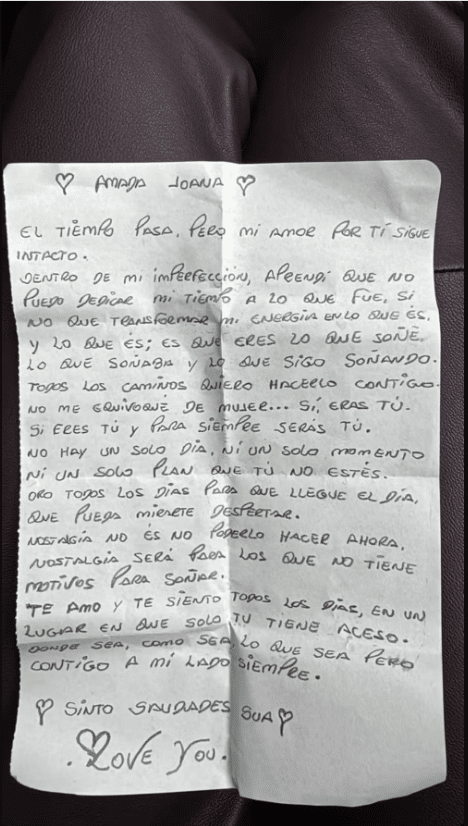 ♡ AMADA JOANA ♡
EL TIEMPO PASA, PERO MI AMOR POR TÍ SIGUE
INTACTO.
DENTRO DE MI IMPERFECCIÓN, APRENDÍ QUE NO
PUEDO DEDICAR MI TIEMPO A LO QUE FUE, SI
NO QUE TRANSFORMAR MI ENERGIA EN LO QUE ÉS.
Y LO QUE ÉS; ES QUE ERES LO QUE SOÑÉ,
LO QUE SOÑABA Y LO QUE SIGO SOÑANDO.
TODOS LOS CAMINOS QUIERO HACERLO CONTIGO.
NO ME EQUIVOQUÉ DE MUJER... SÍ, ERAS TÚ.
SI ERES TÚ Y PARA SIEMPRE SERÁS TÚ.
NO HAY UN SOLO DÍA, NI UN SOLO MOMENTO
NI UN SOLO PLAN QUE TÚ NO ESTÉS.
ORO TODOS LOS DÍAS PARA QUE LLEGUE EL DÍA,
QUE PUEDA DESPERTAR.
NOSTALGIA NO ÉS NO PODERLO HACER AHORA,
NOSTALGIA SERÁ PARA LOS QUE NO TIENE
MOTIVOS PARA SOÑAR.
TE AMO Y TE SIENTO TODOS LOS DÍAS, EN UN
LUGAR EN QUE SOLO TU TIENE ACESO.
DONDE SEA, COMO SEA, LO QUE SEA PERO
CONTIGO A MI LADO SIEMPRE.
♡ SINTO SAUDADES SUA ♡
. ♡ LOVE YOU.